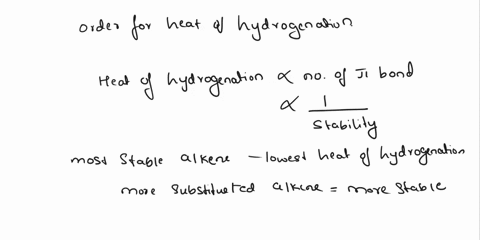 order for heat of hydrogenation
Heat of hydrogenation ∝ no. of π bond
∝ 1
Stability
most stable alkene – lowest heat of hydrogenation
more substituted alkene = more stable